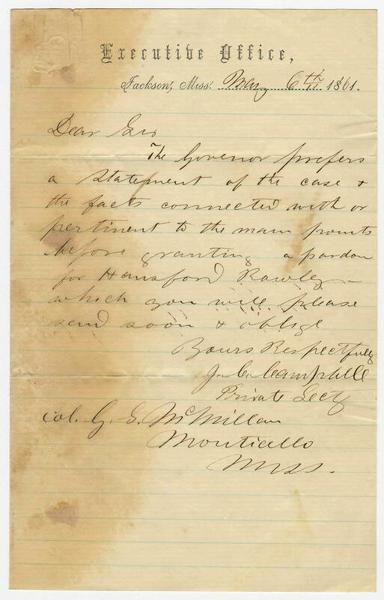 Executive Office,
Jackson, Miss. May 6th 1861.
Dear Sir
The Governor prefers
a Statement of the case &
the facts connected with or
pertinent to the main points
before granting a pardon
for Hansford Rawley—
which you will please
send soon & oblige
Yours Respectfully
J. C. Campbell
Private Secty
Col. G. S. McMillan
Monticello
Miss.